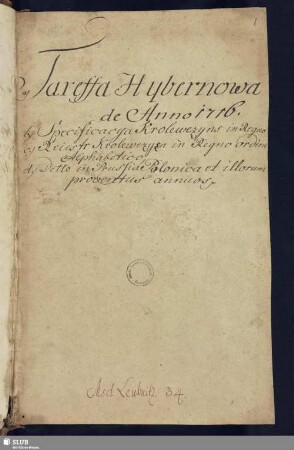 1
a, Tareffa Hybernowa
de Anno 1716.
b, Specificacya Krolewczyns in Regno
c, Reiestr Krolewczyzn in Regno ordine
Alphabetico
d, Detto in Prussia Polonica et illorum
proventus annuos.
Mscr Leubnitz. 34.
SLUB